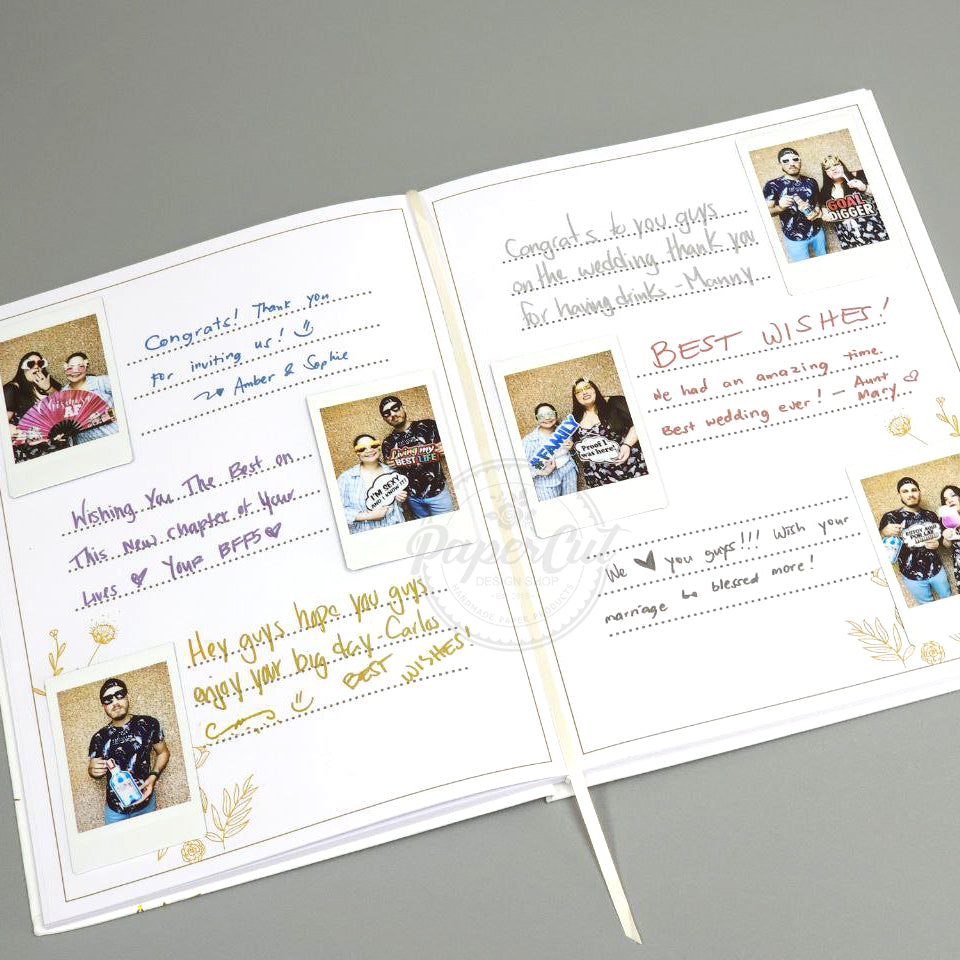 Congrats! Thank you
for inviting us! :)
Amber & Sophie
AF
Living my
BEST LIFE
I'M SEXY
AND I KNOW IT!
Wishing You The Best on
This New chapter of Your
Lives ♥ Your BFFS ♥
Hey guys hope you guys
enjoy your big day - Carlos
:) BEST WISHES!
Congrats to you guys
on the wedding thank you
for having drinks - Manny
GOAL
DIGGER
BEST WISHES!
We had an amazing time.
Best wedding ever! — Aunt Mary ♡
#FAMILY
Proof I
was here!
We ♥ you guys!!! Wish your
marriage be blessed more!
PaperCut
DESIGN SHOP
HANDMADE PAPER PRODUCTS